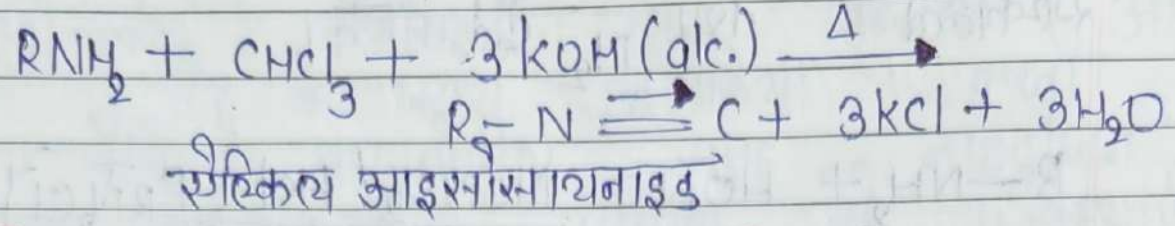 RNH₂ + CHCl₃ + 3KOH (alc.) —Δ→
R-N ⩲→ C + 3KCl + 3H₂O
ऐल्किल आइसोसायनाइड